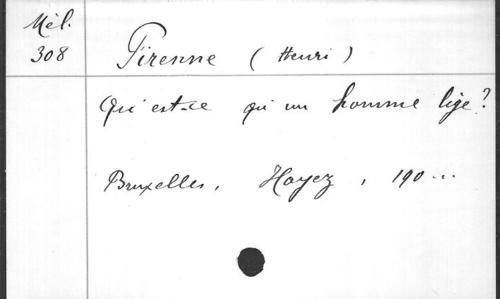 Mél.
308
Pirenne (Henri)
Qu'est-ce qu'un homme lige?
Bruxelles, Hayez, 190...